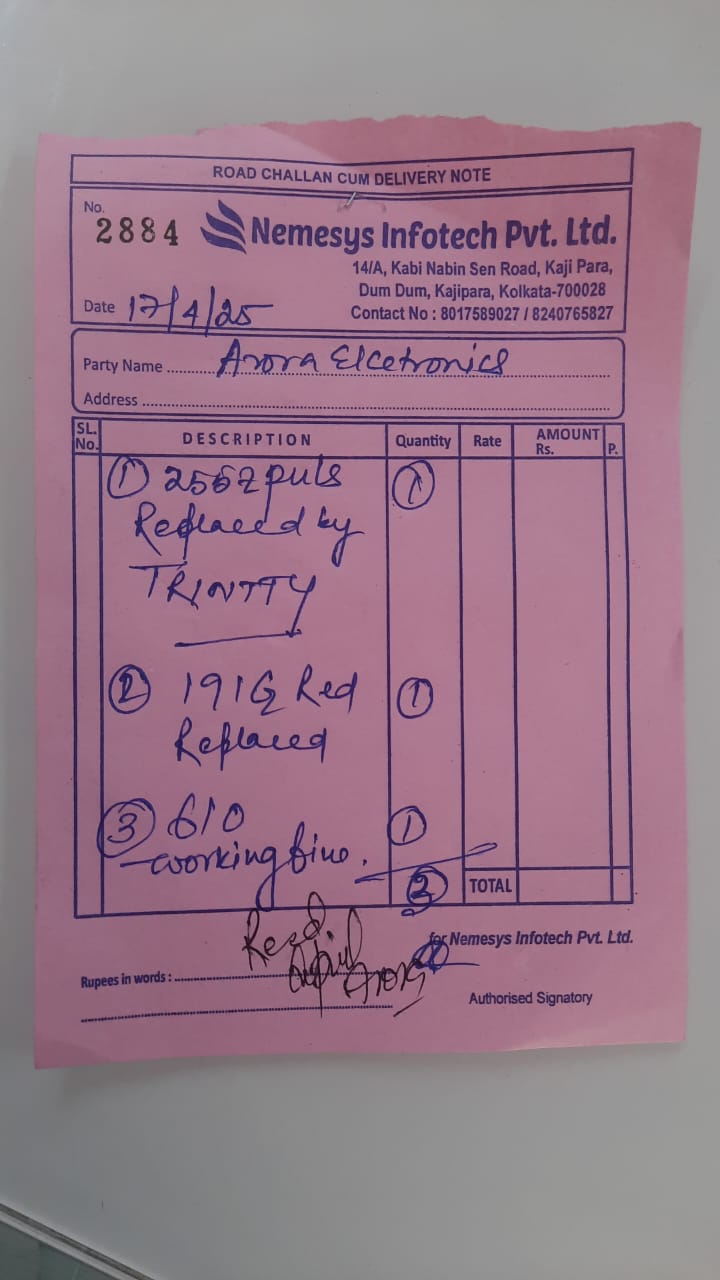 ROAD CHALLAN CUM DELIVERY NOTE
No.
2884
Nemesys Infotech Pvt. Ltd.
14/A, Kabi Nabin Sen Road, Kaji Para,
Dum Dum, Kajipara, Kolkata-700028
Contact No : 8017589027 / 8240765827
Date 17/4/25
Party Name Arora Elcetronics
Address
SL. No. DESCRIPTION Quantity Rate AMOUNT Rs. P.
① puls ①
Replaced by
TRINTTY
② Red ①
Replaced
③ 610 ①
working fine.
TOTAL
for Nemesys Infotech Pvt. Ltd.
Recd.
Arora
Rupees in words :
Authorised Signatory